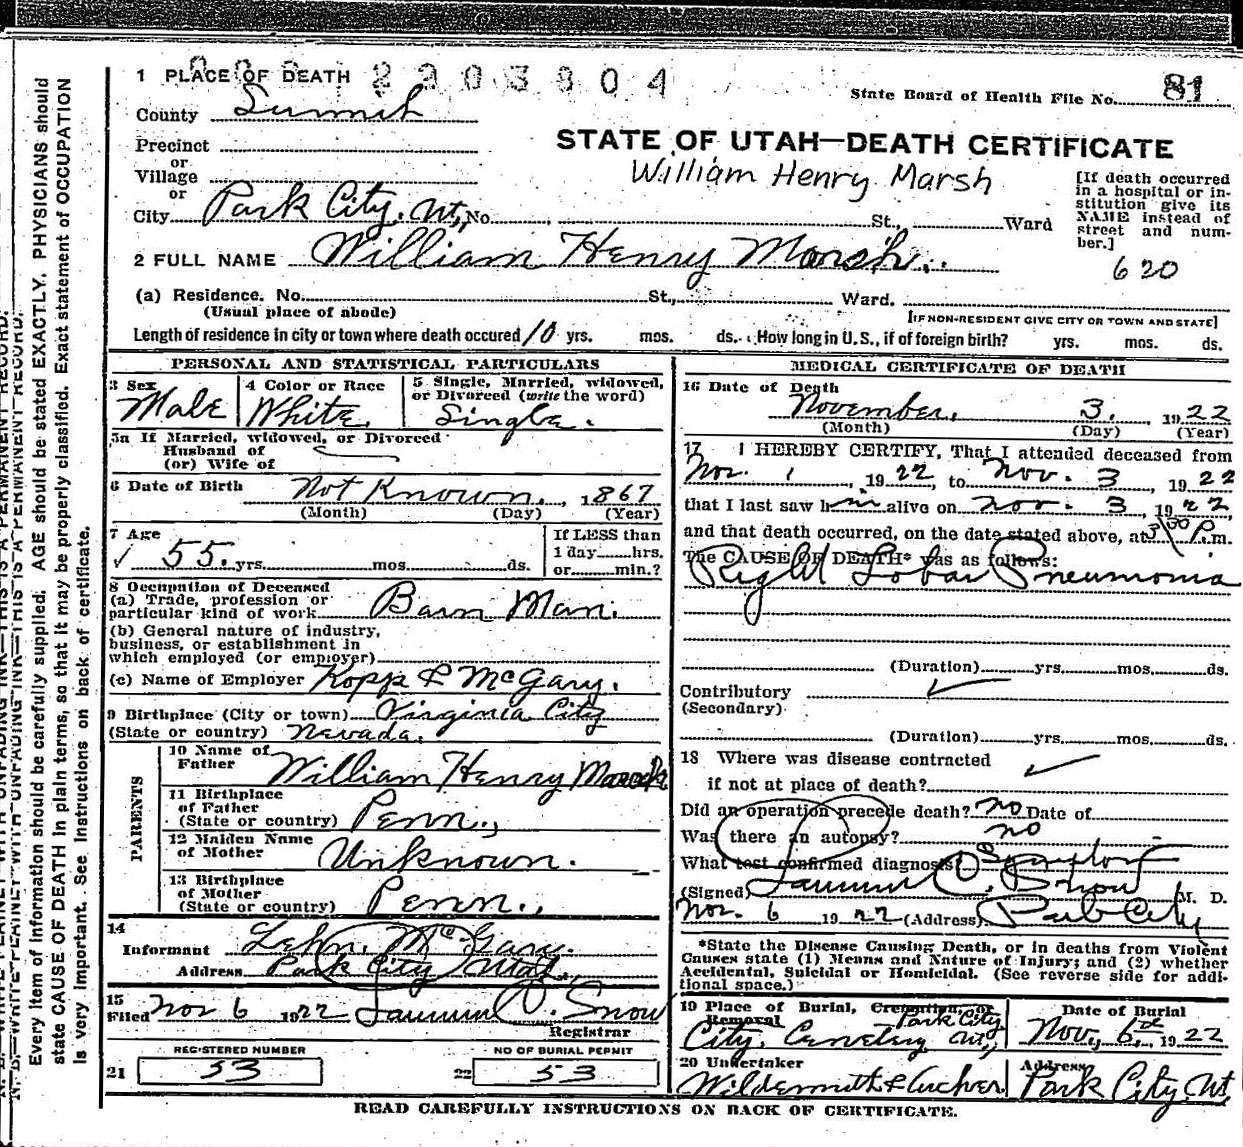 1 PLACE OF DEATH
2203804
State Board of Health File No. 81
County Summit
Precinct
or
Village
or
City Park City, Ut, No. St., Ward
STATE OF UTAH—DEATH CERTIFICATE
William Henry Marsh
[If death occurred in a hospital or institution give its NAME instead of street and number.]
620
2 FULL NAME William Henry Marsh.
(a) Residence. No. St., Ward.
(Usual place of abode)
[IF NON-RESIDENT GIVE CITY OR TOWN AND STATE]
Length of residence in city or town where death occured 10 yrs. mos. ds. How long in U. S., if of foreign birth? yrs. mos. ds.
PERSONAL AND STATISTICAL PARTICULARS
3 Sex
Male
4 Color or Race
White.
5 Single, Married, widowed,
or Divorced (write the word)
Single.
5a If Married, widowed, or Divorced
Husband of
(or) Wife of
6 Date of Birth Not Known, 1867
(Month) (Day) (Year)
7 Age
55. yrs. mos. ds.
If LESS than
1 day hrs.
or min.?
8 Occupation of Deceased
(a) Trade, profession or
particular kind of work Barn Man.
(b) General nature of industry,
business, or establishment in
which employed (or employer)
(c) Name of Employer Kopp & McGary.
9 Birthplace (City or town) Virginia City
(State or country) Nevada.
PARENTS
10 Name of
Father William Henry
11 Birthplace
of Father
(State or country) Penn.,
12 Maiden Name
of Mother Unknown.
13 Birthplace
of Mother
(State or country) Penn.,
14
Informant McGary.
Address Park City Utah,
15
Filed Nov 6 1922 O. Snow
Registrar
REGISTERED NUMBER
21 53
NO OF BURIAL PERMIT
22 53
MEDICAL CERTIFICATE OF DEATH
16 Date of Death
November, 3. , 1922
(Month) (Day) (Year)
17 I HEREBY CERTIFY, That I attended deceased from
Nov. 1 , 1922, to Nov. 3 , 1922
that I last saw him alive on Nov. 3 , 1922
and that death occurred, on the date stated above, at 3/00 P. m.
The CAUSE OF DEATH* was as follows:
Right Lobar Pneumonia
(Duration) yrs. mos. ds.
Contributory
(Secondary)
(Duration) yrs. mos. ds.
18 Where was disease contracted
if not at place of death?
Did an operation precede death? no Date of
Was there an autopsy? no
What test confirmed diagnosis?
(Signed) O. Snow M. D.
Nov. 6 1922 (Address) Park City
*State the Disease Causing Death, or in deaths from Violent
Causes state (1) Means and Nature of Injury; and (2) whether
Accidental, Suicidal or Homicidal. (See reverse side for addi-
tional space.)
19 Place of Burial, Cremation, or
Removal Park City
City. Cemetery Ut,
Date of Burial
Nov., 6, 1922
20 Undertaker
Wildemuth & Archer.
Address
Park City, Ut,
READ CAREFULLY INSTRUCTIONS ON BACK OF CERTIFICATE.
Every item of information should be carefully supplied. AGE should be stated EXACTLY. PHYSICIANS should
state CAUSE OF DEATH in plain terms, so that it may be properly classified. Exact statement of OCCUPATION
is very important. See Instructions on back of certificate.